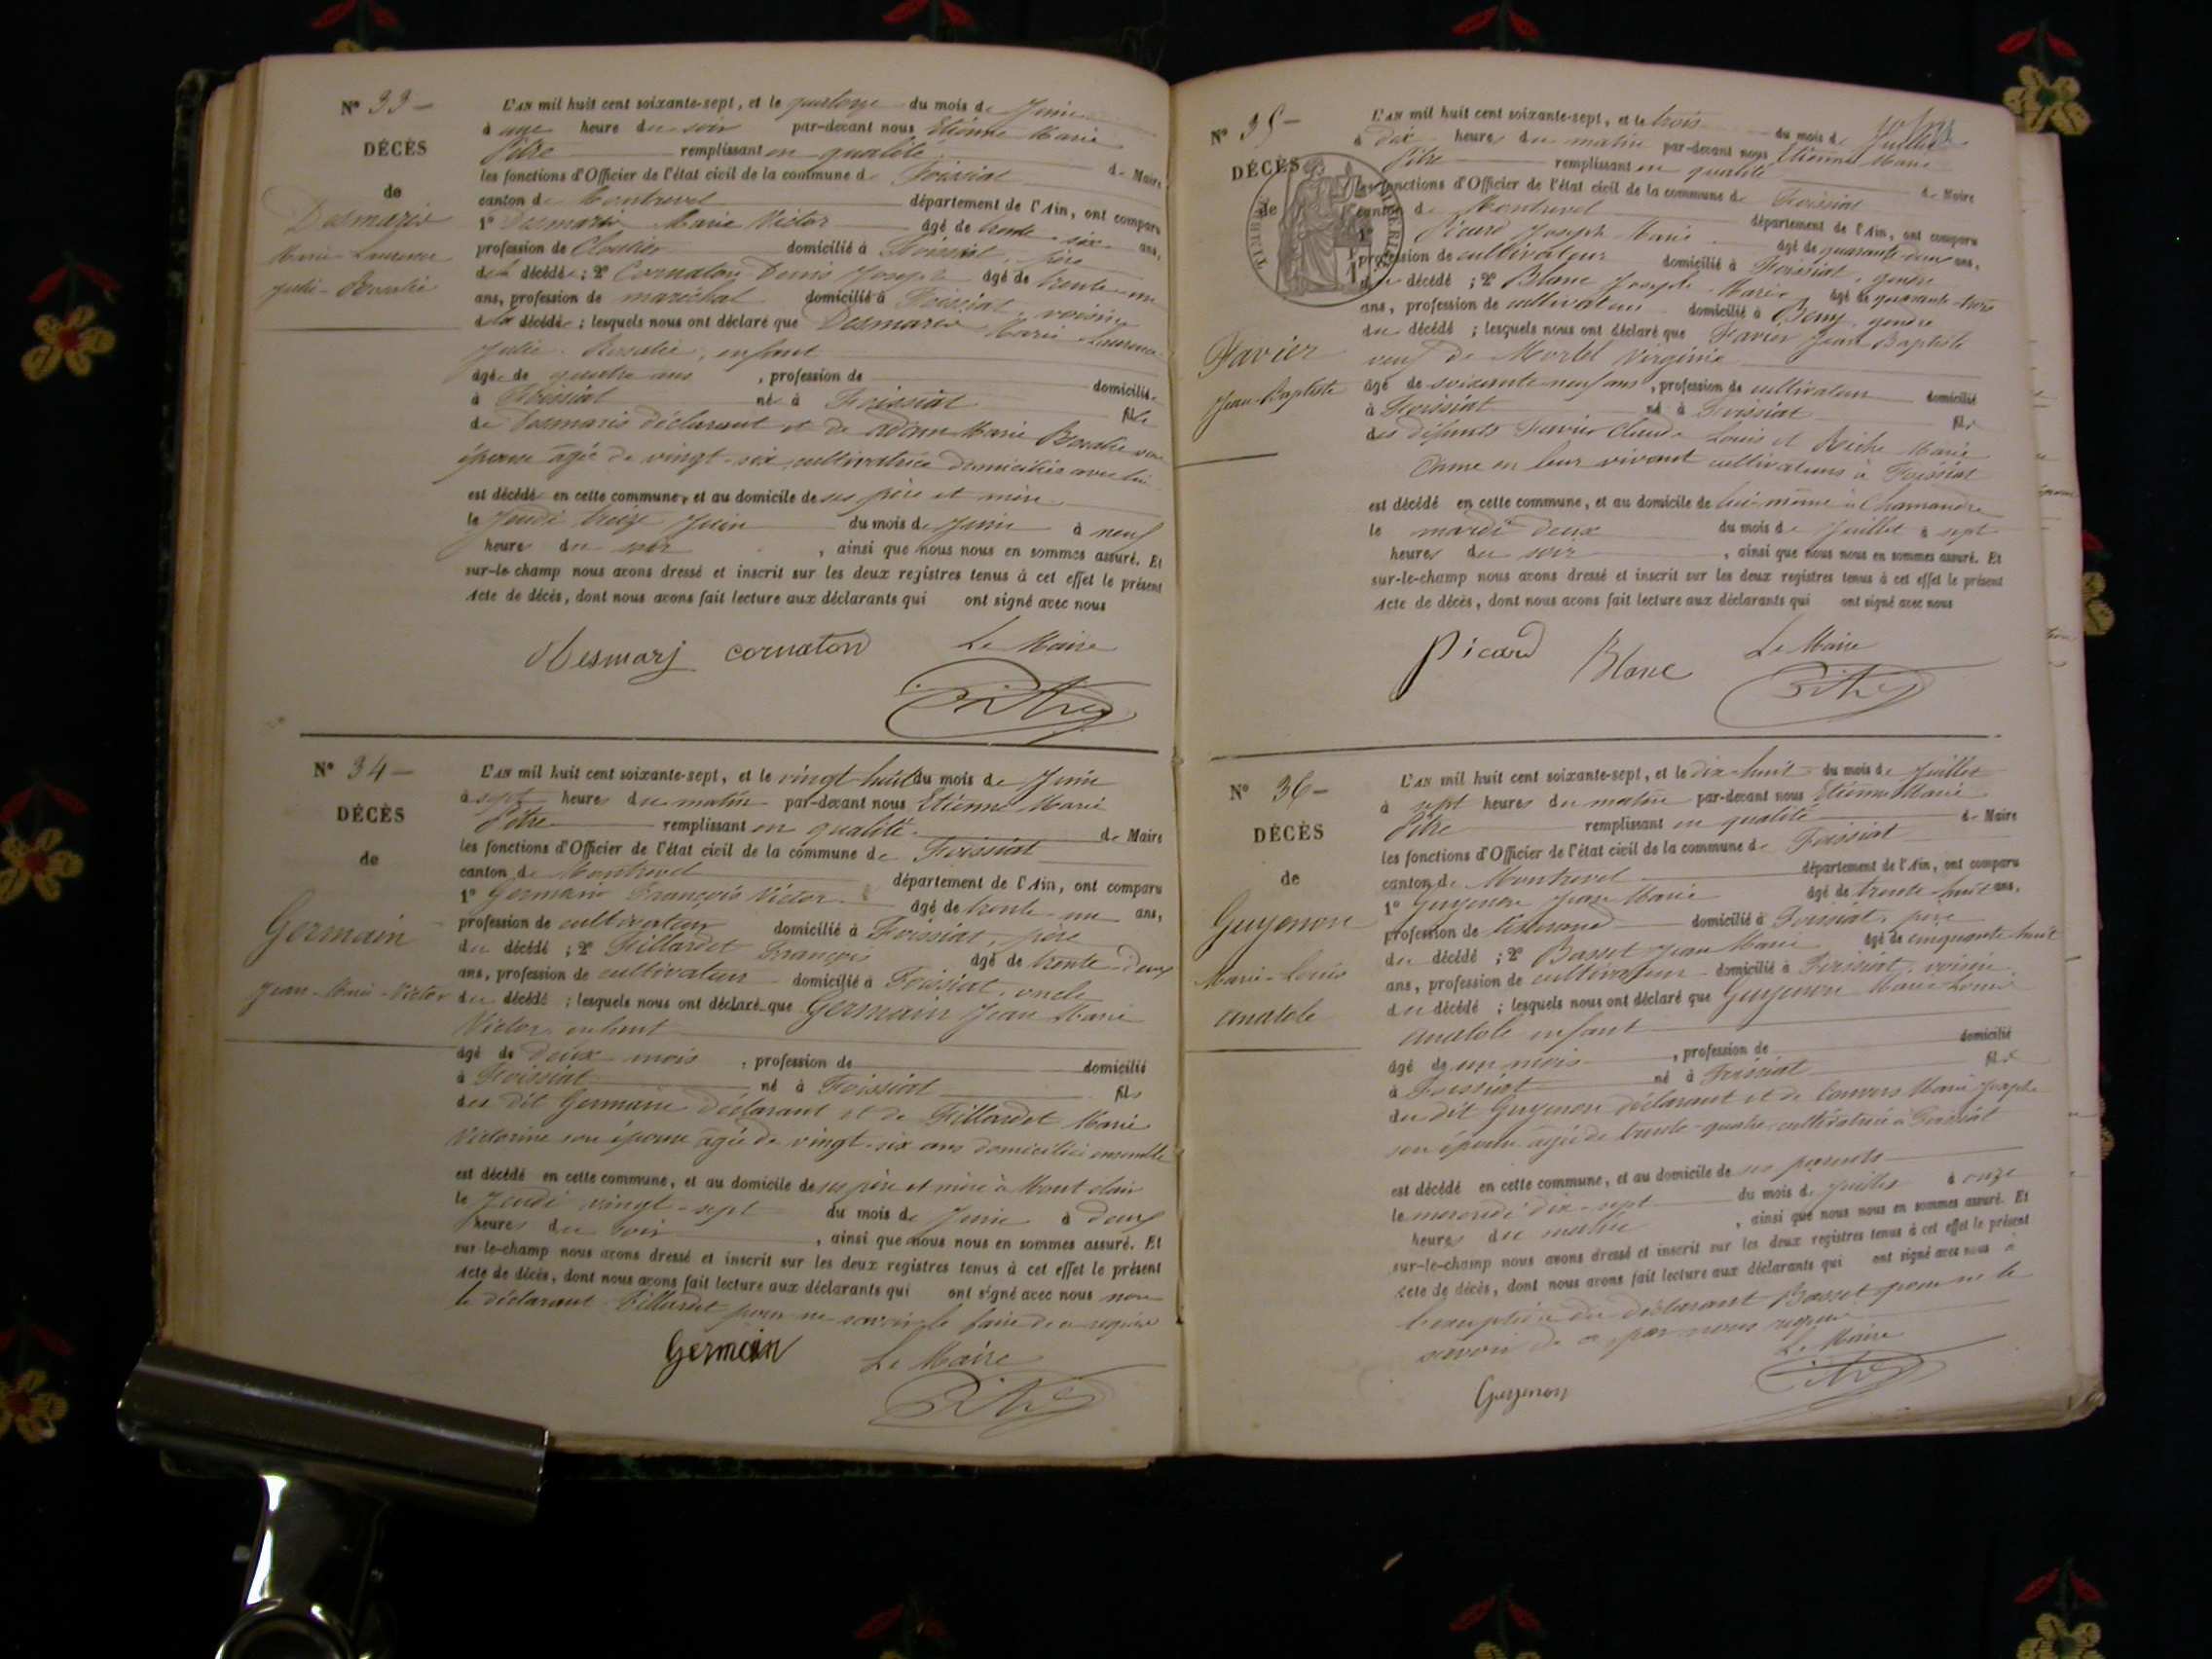 N° 33 —
DÉCÈS
de
Desmaris
Marie-Laurence
Julie-Rosalie
L'AN mil huit cent soixante-sept, et le quatorze du mois de Juin
à onze heure du soir par-devant nous Etienne Marie
Pitre remplissant en qualité de Maire
les fonctions d'Officier de l'état civil de la commune de Foissiat
canton de Montrevel département de l'Ain, ont comparu
1° Desmaris Marie Victor âgé de trente-six ans,
profession de Cloutier domicilié à Foissiat, père
de la décédée ; 2° Cornaton Denis Joseph âgé de trente-un
ans, profession de maréchal domicilié à Foissiat, voisin
de la décédée ; lesquels nous ont déclaré que Desmaris Marie Laurence
Julie Rosalie, enfant
âgée de quatre ans , profession de domiciliée
à Foissiat née à Foissiat fille
de Desmaris déclarant et de Adam Marie Rosalie son
épouse âgée de vingt-six cultivatrice domiciliée avec lui
est décédée en cette commune, et au domicile de ses père et mère
le Jeudi treize Juin du mois de Juin à neuf
heures du soir , ainsi que nous nous en sommes assuré. Et
sur-le-champ nous avons dressé et inscrit sur les deux registres tenus à cet effet le présent
Acte de décès, dont nous avons fait lecture aux déclarants qui ont signé avec nous
Desmarj cornaton Le Maire
Pitre
N° 34 —
DÉCÈS
de
Germain
Jean-Marie-Victor
L'AN mil huit cent soixante-sept, et le vingt-huit du mois de Juin
à sept heures du matin par-devant nous Etienne Marie
Pitre remplissant en qualité de Maire
les fonctions d'Officier de l'état civil de la commune de Foissiat
canton de Montrevel département de l'Ain, ont comparu
1° Germain François Victor âgé de trente-un ans,
profession de cultivateur domicilié à Foissiat, père
du décédé ; 2° Fillardet François âgé de trente-deux
ans, profession de cultivateur domicilié à Foissiat, oncle
du décédé ; lesquels nous ont déclaré que Germain Jean Marie
Victor, enfant
âgé de deux mois , profession de domicilié
à Foissiat né à Foissiat fils
du dit Germain déclarant et de Fillardet Marie
Victorine son épouse âgée de vingt-six ans domiciliés ensemble
est décédé en cette commune, et au domicile de ses père et mère à Mont clair
le Jeudi vingt-sept du mois de Juin à deux
heures du soir , ainsi que nous nous en sommes assuré. Et
sur-le-champ nous avons dressé et inscrit sur les deux registres tenus à cet effet le présent
Acte de décès, dont nous avons fait lecture aux déclarants qui ont signé avec nous non
le déclarant Fillardet pour ne savoir le faire de ce requis
Germain Le Maire
Pitre
N° 35 —
DÉCÈS
de
TIMBRE IMPÉRIAL
Favier
Jean-Baptiste
L'AN mil huit cent soixante-sept, et le trois du mois de Juillet
à dix heures du matin par-devant nous Etienne Marie
Pitre remplissant en qualité de Maire
les fonctions d'Officier de l'état civil de la commune de Foissiat
canton de Montrevel département de l'Ain, ont comparu
1° Picard Joseph Marie âgé de quarante-deux ans,
profession de cultivateur domicilié à Foissiat, gendre
du décédé ; 2° Blanc Joseph Marie âgé de quarante-trois
ans, profession de cultivateur domicilié à Beny gendre
du décédé ; lesquels nous ont déclaré que Favier Jean Baptiste
veuf de Mortel Virginie
âgé de soixante-neuf ans , profession de cultivateur domicilié
à Foissiat né à Foissiat fils
des défunts Favier Claude Louis et Riche Marie
Anne en leur vivant cultivateurs à Foissiat
est décédé en cette commune, et au domicile de lui-même à Chamandre
le mardi deux du mois de Juillet à sept
heures du soir , ainsi que nous nous en sommes assuré. Et
sur-le-champ nous avons dressé et inscrit sur les deux registres tenus à cet effet le présent
Acte de décès, dont nous avons fait lecture aux déclarants qui ont signé avec nous
Picard Blanc Le Maire
Pitre
N° 36 —
DÉCÈS
de
Guyenon
Marie-Louis
Anatole
L'AN mil huit cent soixante-sept, et le dix-huit du mois de Juillet
à sept heures du matin par-devant nous Etienne Marie
Pitre remplissant en qualité de Maire
les fonctions d'Officier de l'état civil de la commune de Foissiat
canton de Montrevel département de l'Ain, ont comparu
1° Guyenon Jean Marie âgé de trente-huit ans,
profession de tisserand domicilié à Foissiat, père
du décédé ; 2° Basset Jean Marie âgé de cinquante-huit
ans, profession de cultivateur domicilié à Foissiat, voisin
du décédé ; lesquels nous ont déclaré que Guyenon Marie Louis
Anatole enfant
âgé de un mois , profession de domicilié
à Foissiat né à Foissiat fils
du dit Guyenon déclarant et de Convers Marie Josephe
son épouse âgée de trente-quatre cultivatrice à Foissiat
est décédé en cette commune, et au domicile de ses parents
le mercredi dix-sept du mois de Juillet à onze
heures du matin , ainsi que nous nous en sommes assuré. Et
sur-le-champ nous avons dressé et inscrit sur les deux registres tenus à cet effet le présent
Acte de décès, dont nous avons fait lecture aux déclarants qui ont signé avec nous à
l'exception du déclarant Basset pour ne le
savoir de ce par nous requis
Le Maire
Guyenon Pitre